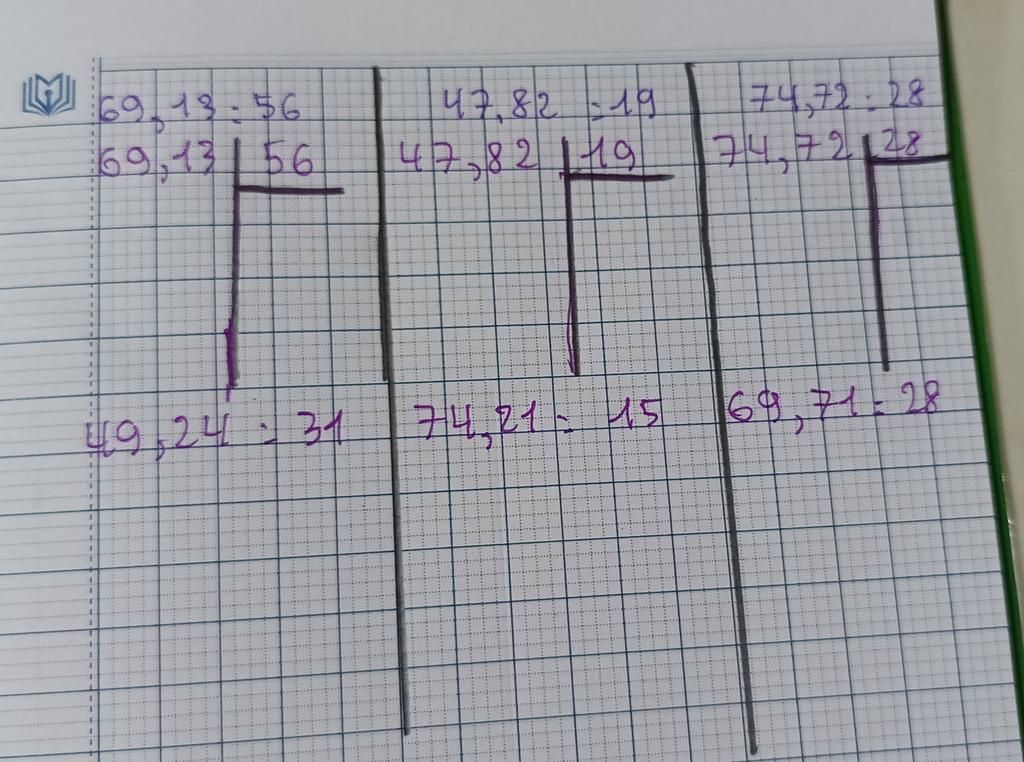 69,13 : 56
69,13 56
49,24 : 31
47,82 : 19
47,82 19
74,21 : 15
74,72 : 28
74,72 28
69,71 : 28